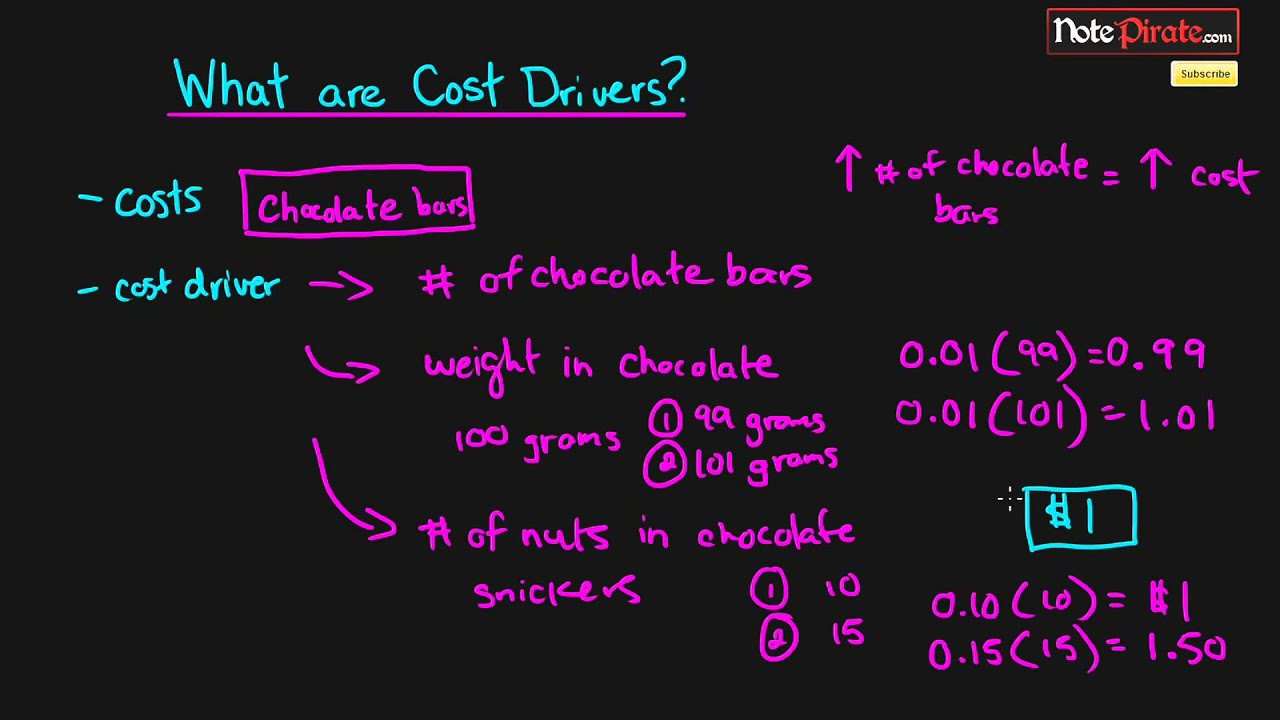 NotePirate.com
Subscribe
What are Cost Drivers?
- costs
Chocolate bars
↑ # of chocolate bars = ↑ cost
- cost driver → # of chocolate bars
weight in chocolate
100 grams
① 99 grams
② 101 grams
0.01(99)=0.99
0.01(101)=1.01
$1
# of nuts in chocolate
snickers
① 10
② 15
0.10(10)=$1
0.15(15)=1.50